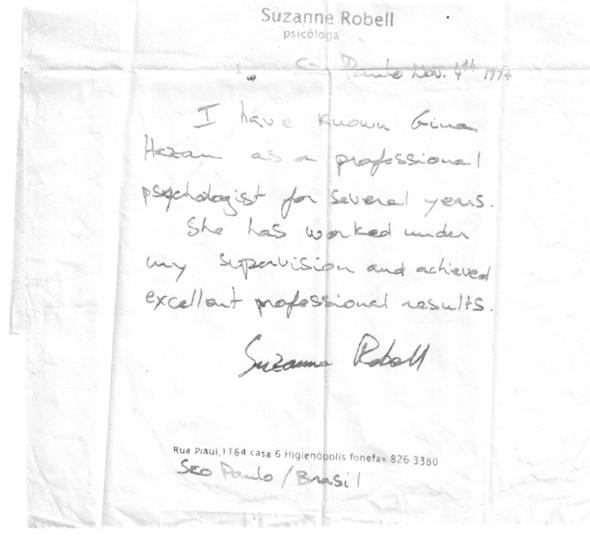 Suzanne Robell
psicóloga
Paulo Nov. 4th
I have known Gina
Hazan as a professional
psychologist for several years.
She has worked under
my supervision and achieved
excellent professional results.
Suzanne Robell
Rua Piauí, 1164 casa 6 Higienópolis fonefax 826 3380
São Paulo / Brasil